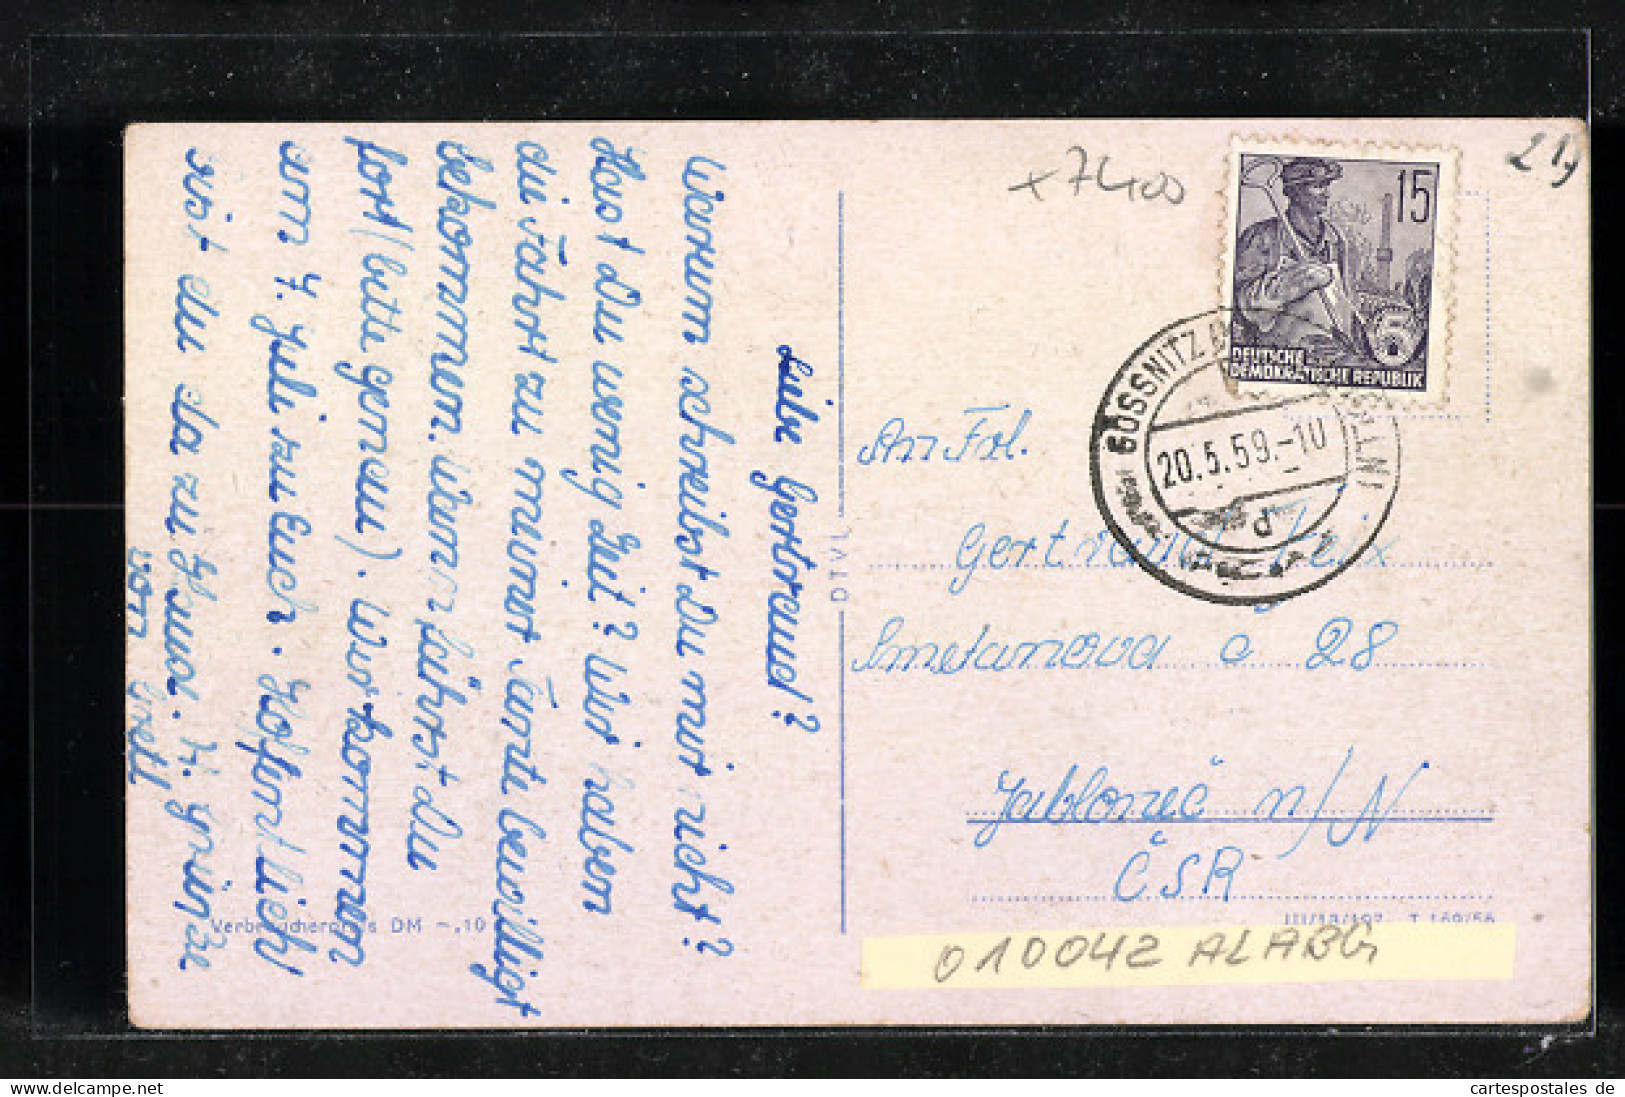 Liebe Gertraud?
Warum schreibst du mir nicht?
Hast du wenig Zeit? Wir haben
die Fahrt zu meiner Tante bewilligt
bekommen. Wann fährst du
fort (bitte genau). Wir kommen
am 4. Juli zu Euch. Hoffentlich
bist du da zu Haus. H. Grüsze
von Gretl
x7400
219
15
5
DEUTSCHE
DEMOKRATISCHE REPUBLIK
GÖSSNITZ
20.5.59.-10
d
An Frl.
Gertraud
Smetanova c 28
Jablonec n/N
ČSR
DTVL
Verbraucherpreis DM -.10
III/18/197 T 169/56
010042 ALABG
cartespostales de